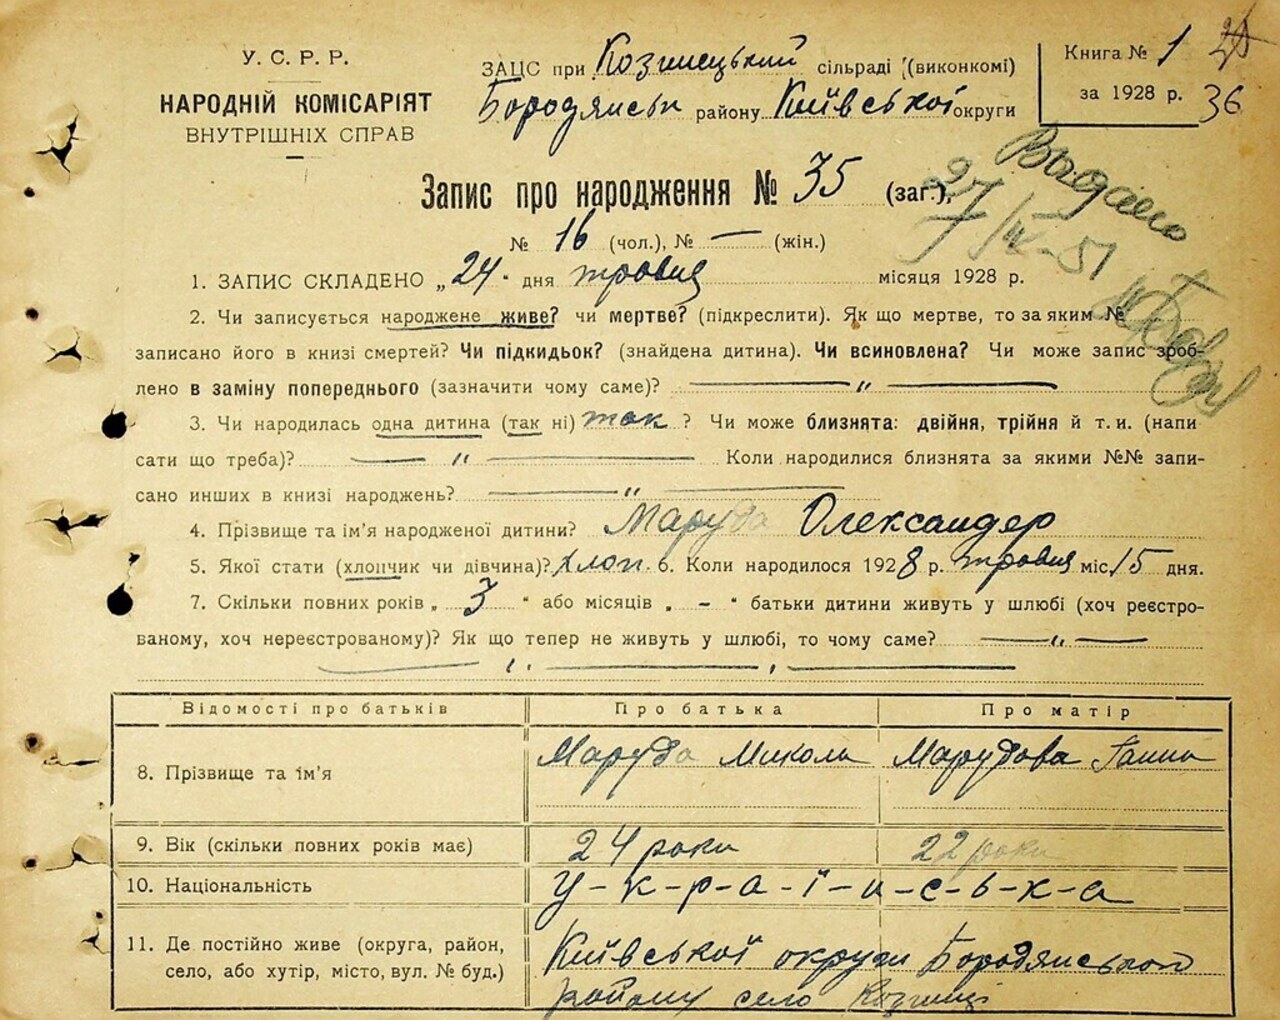 У. С. Р. Р.
НАРОДНІЙ КОМІСАРІЯТ
ВНУТРІШНІХ СПРАВ
ЗАЦС при Козинецький сільраді (виконкомі)
Бородянськ району Київської округи
Книга № 1
за 1928 р. 36
Запис про народження № 35 (заг.),
№ 16 (чол.), № — (жін.)
Видано
27/IV-51
1. ЗАПИС СКЛАДЕНО „24" дня травня місяця 1928 р.
2. Чи записується народжене живе? чи мертве? (підкреслити). Як що мертве, то за яким №
записано його в книзі смертей? Чи підкидьок? (знайдена дитина). Чи всиновлена? Чи може запис зроб-
лено в заміну попереднього (зазначити чому саме)? — „ —
3. Чи народилась одна дитина (так ні) так ? Чи може близнята: двійня, трійня й т. и. (напи
сати що треба)? — „ — Коли народилися близнята за якими №№ запи-
сано инших в книзі народжень? — „ —
4. Прізвище та ім'я народженої дитини? Маруда Олександер
5. Якої стати (хлопчик чи дівчина)? хлоп. 6. Коли народилося 1928 р. травня міс. 15 дня.
7. Скільки повних років „ 3 " або місяців „ - " батьки дитини живуть у шлюбі (хоч реєстро-
ваному, хоч нереєстрованому)? Як що тепер не живуть у шлюбі, то чому саме? — „ —
Відомості про батьків Про батька Про матір
8. Прізвище та ім'я Маруда Микола Марудова Ганна
9. Вік (скільки повних років має) 24 роки 22 роки
10. Національність У-к-р-а-ї-н-с-ь-к-а
11. Де постійно живе (округа, район, Київської округи Бородянського
село, або хутір, місто, вул. № буд.) району село Козинці